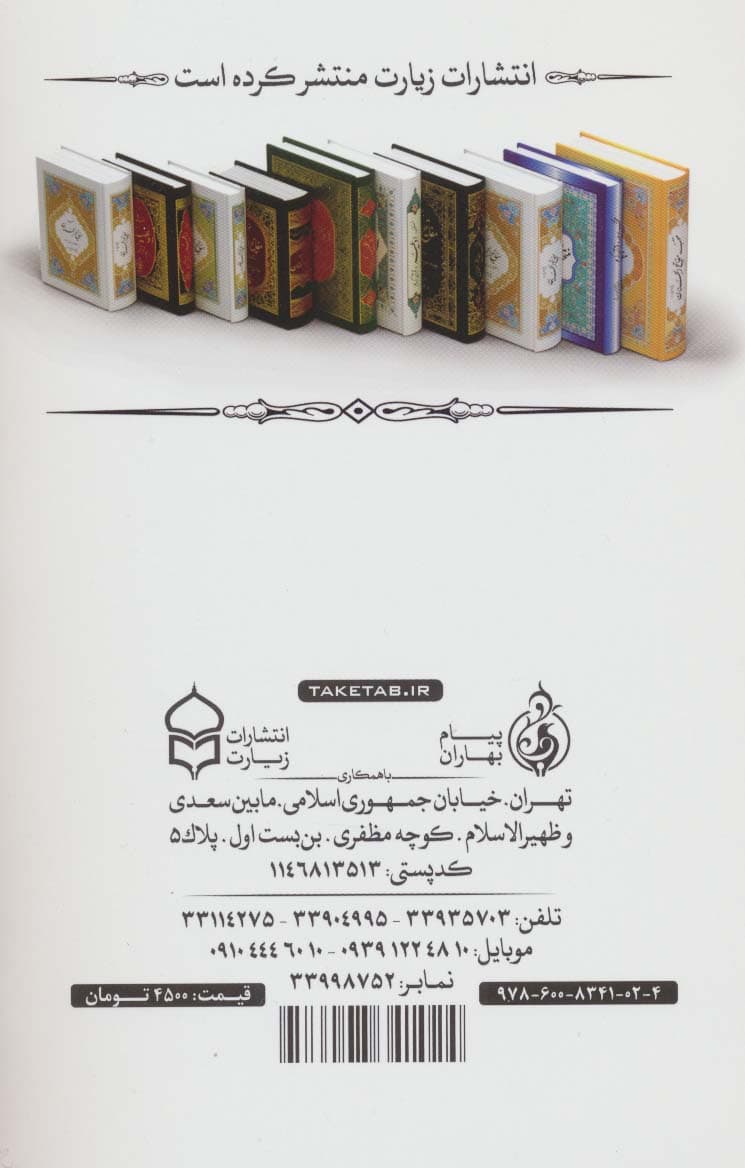 انتشارات زیارت منتشر کرده است
TAKETAB.IR
پیام
بهاران
انتشارات
زیارت
باهمکاری
تهران. خیابان جمهوری اسلامی. مابین سعدی
و ظهیرالاسلام. کوچه مظفری. بن‌بست اول. پلاک ۵
کدپستی: ۱۱۴۶۸۱۳۵۱۳
تلفن: ۳۳۹۳۵۷۰۳ - ۳۳۹۰۴۹۹۵ - ۳۳۱۱۴۲۷۵
موبایل: ۰۹۳۹۱۲۲۴۸۱۰ - ۰۹۱۰۴۴۴۶۰۱۰
نمابر: ۳۳۹۹۸۷۵۲
۹۷۸-۶۰۰-۸۳۴۱-۰۲-۴
قیمت: ۴۵۰۰ تومان